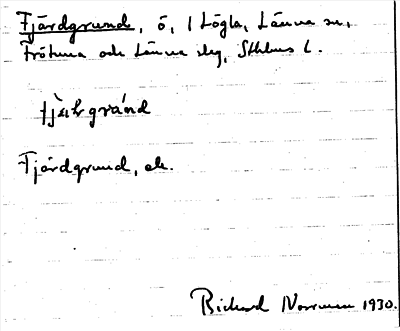 Fjärdgrund, ö, 1 Lögla, Länna sn,
Frötuna och Länna slg, Sthlms l.
fjæ̀ḷgrúnd
Fjärdgrund, ek.
Rickard Norrman 1930.